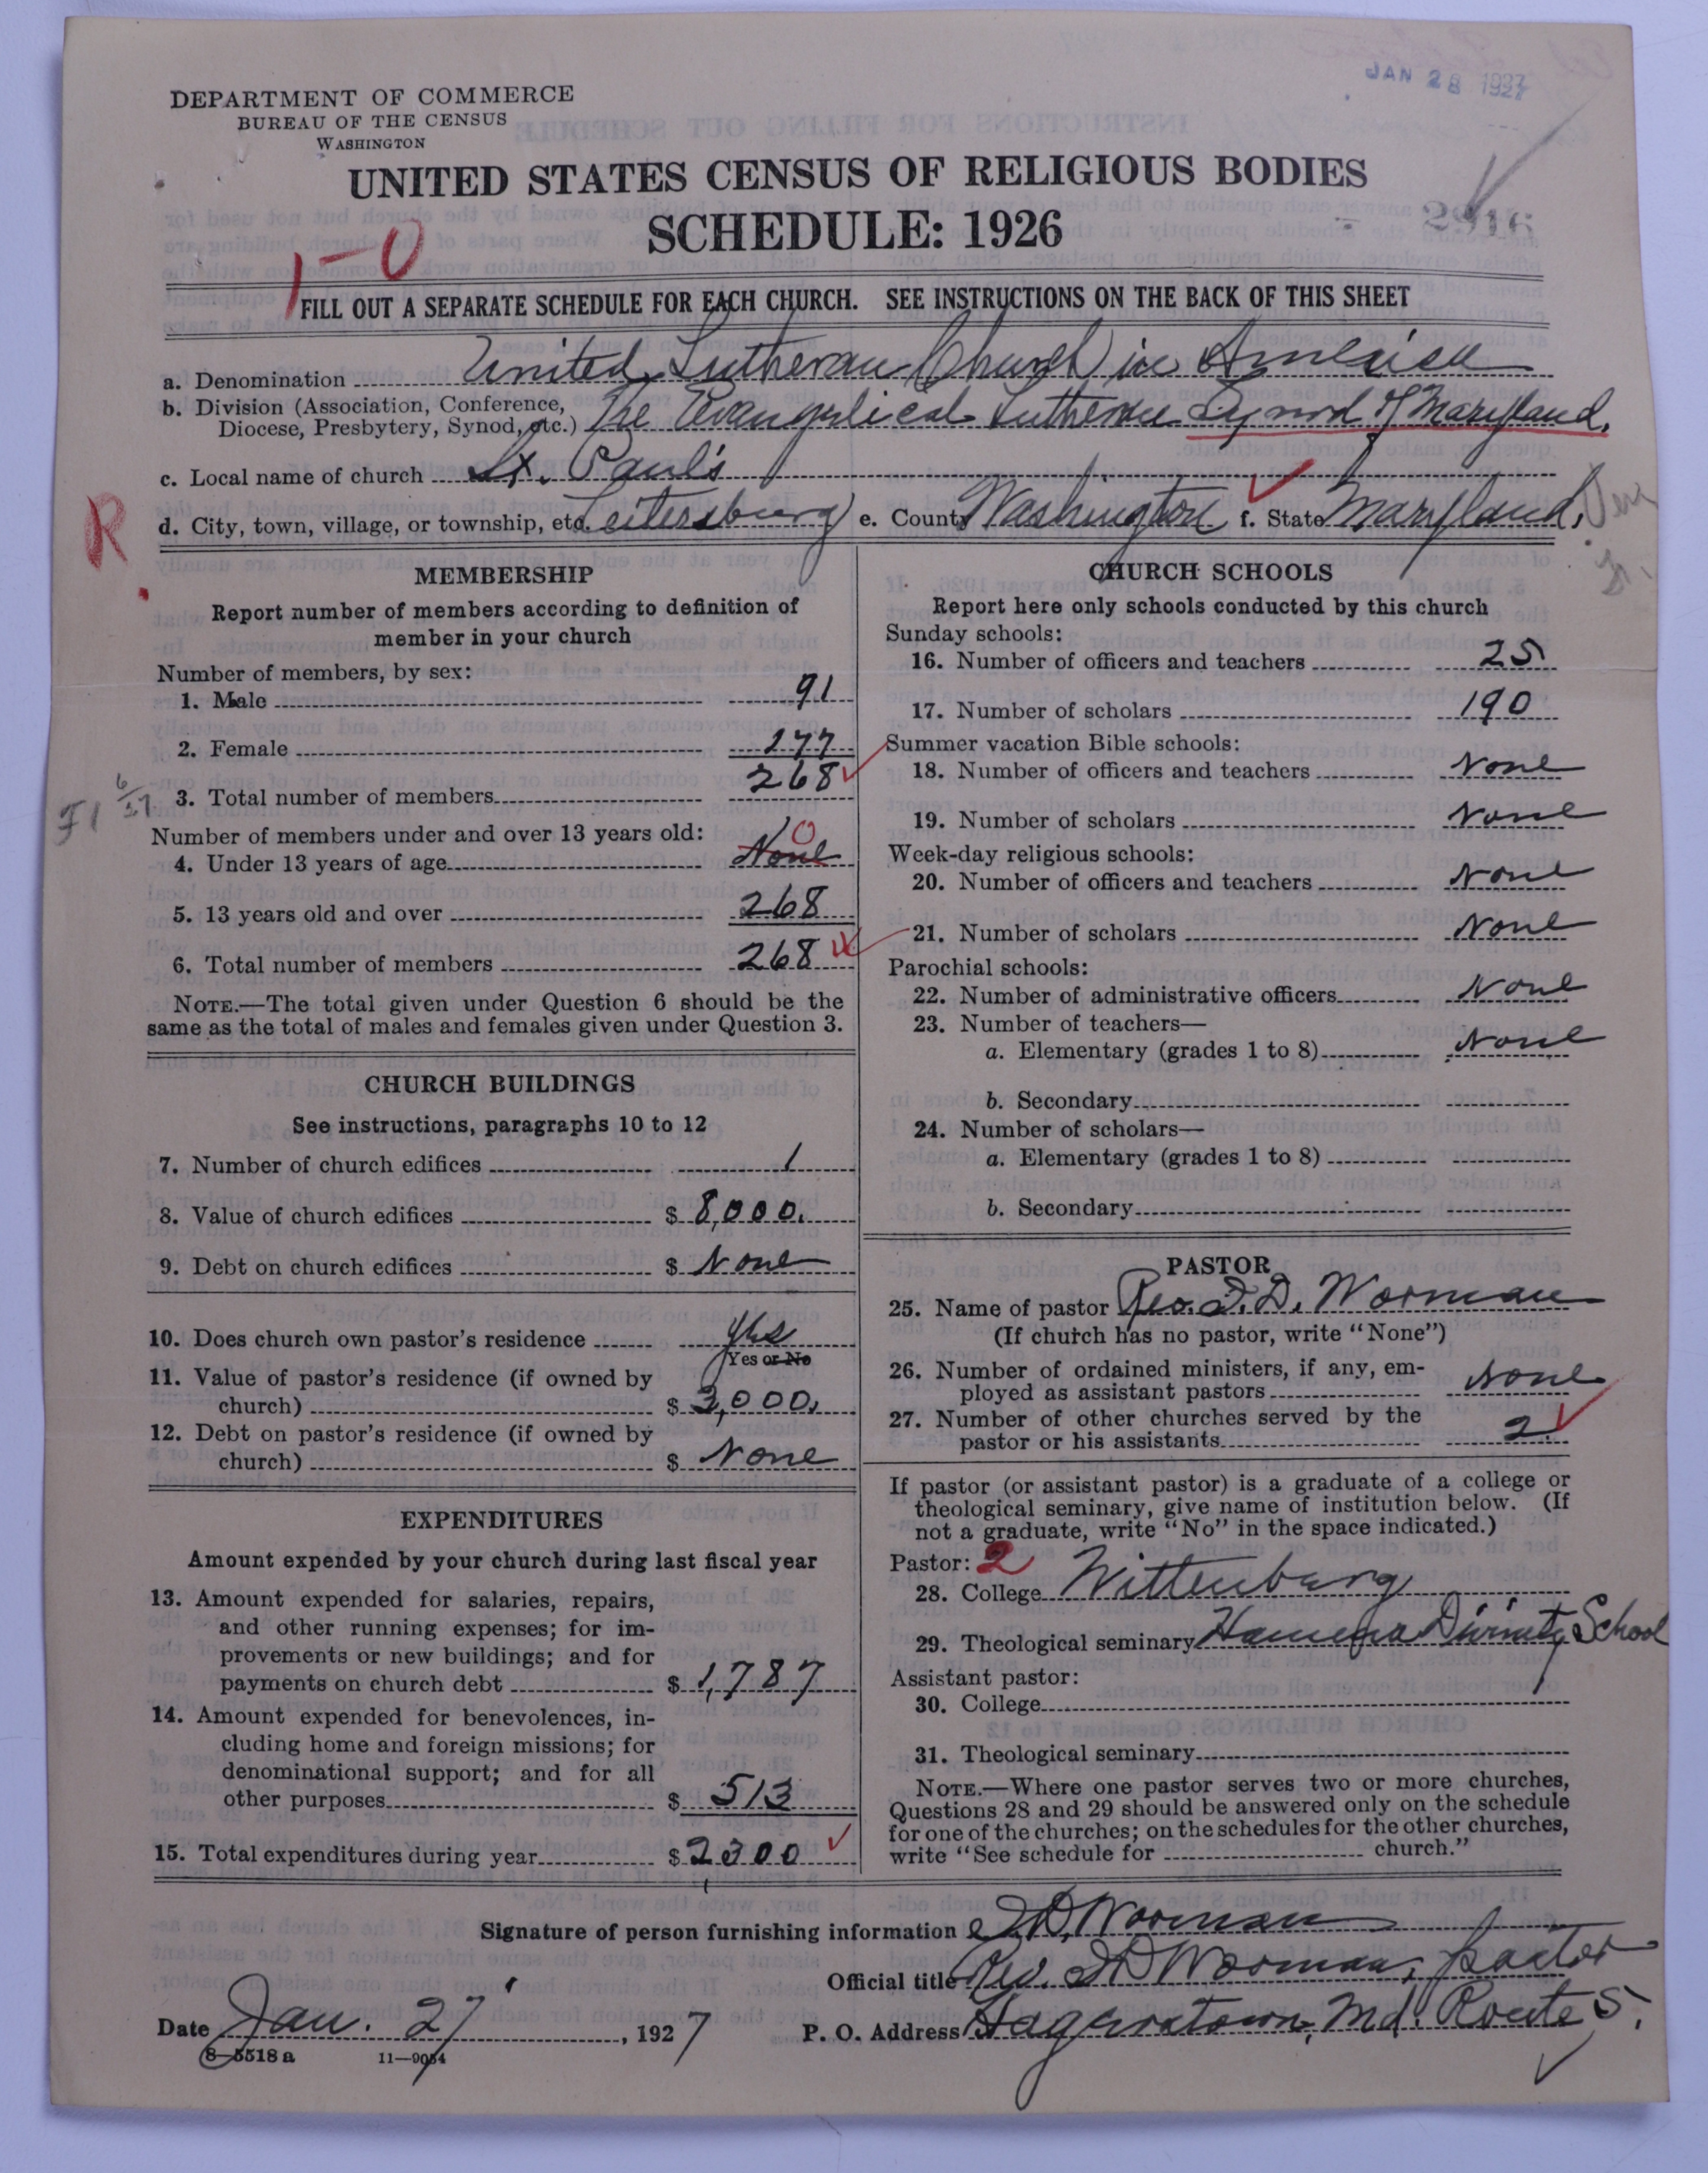 JAN 28 1927
DEPARTMENT OF COMMERCE
BUREAU OF THE CENSUS
WASHINGTON
UNITED STATES CENSUS OF RELIGIOUS BODIES
SCHEDULE: 1926
2916
1-0
FILL OUT A SEPARATE SCHEDULE FOR EACH CHURCH. SEE INSTRUCTIONS ON THE BACK OF THIS SHEET
a. Denomination United Lutheran Church in America
b. Division (Association, Conference, Diocese, Presbytery, Synod, etc.) The Evangelical Lutheran Synod of Maryland.
c. Local name of church St. Paul's
R
d. City, town, village, or township, etc. Leitersburg e. County Washington f. State Maryland.
MEMBERSHIP
Report number of members according to definition of
member in your church
Number of members, by sex:
1. Male 91
2. Female 177
3. Total number of members 268
Number of members under and over 13 years old:
4. Under 13 years of age None 0
5. 13 years old and over 268
6. Total number of members 268
NOTE.—The total given under Question 6 should be the
same as the total of males and females given under Question 3.
CHURCH BUILDINGS
See instructions, paragraphs 10 to 12
7. Number of church edifices 1
8. Value of church edifices $ 8,000.
9. Debt on church edifices $ None
10. Does church own pastor's residence Yes
Yes or No
11. Value of pastor's residence (if owned by
church) $ 3,000.
12. Debt on pastor's residence (if owned by
church) $ None
EXPENDITURES
Amount expended by your church during last fiscal year
13. Amount expended for salaries, repairs,
and other running expenses; for im-
provements or new buildings; and for
payments on church debt $ 1,787
14. Amount expended for benevolences, in-
cluding home and foreign missions; for
denominational support; and for all
other purposes $ 513
15. Total expenditures during year $ 2300
CHURCH SCHOOLS
Report here only schools conducted by this church
Sunday schools:
16. Number of officers and teachers 25
17. Number of scholars 190
Summer vacation Bible schools:
18. Number of officers and teachers None
19. Number of scholars None
Week-day religious schools:
20. Number of officers and teachers None
21. Number of scholars None
Parochial schools:
22. Number of administrative officers None
23. Number of teachers—
a. Elementary (grades 1 to 8) None
b. Secondary
24. Number of scholars—
a. Elementary (grades 1 to 8)
b. Secondary
PASTOR
25. Name of pastor Rev. I. D. Worman
(If church has no pastor, write "None")
26. Number of ordained ministers, if any, em-
ployed as assistant pastors None
27. Number of other churches served by the
pastor or his assistants 2
If pastor (or assistant pastor) is a graduate of a college or
theological seminary, give name of institution below. (If
not a graduate, write "No" in the space indicated.)
Pastor: 2
28. College Wittenburg
29. Theological seminary Hamma Divinity School
Assistant pastor:
30. College
31. Theological seminary
NOTE.—Where one pastor serves two or more churches,
Questions 28 and 29 should be answered only on the schedule
for one of the churches; on the schedules for the other churches,
write "See schedule for church."
Signature of person furnishing information I D Worman
Official title Rev. I D Worman, pastor
Date Jan. 27, 1927 P. O. Address Hagerstown, Md. Route 5.
8-5518 a 11-9054